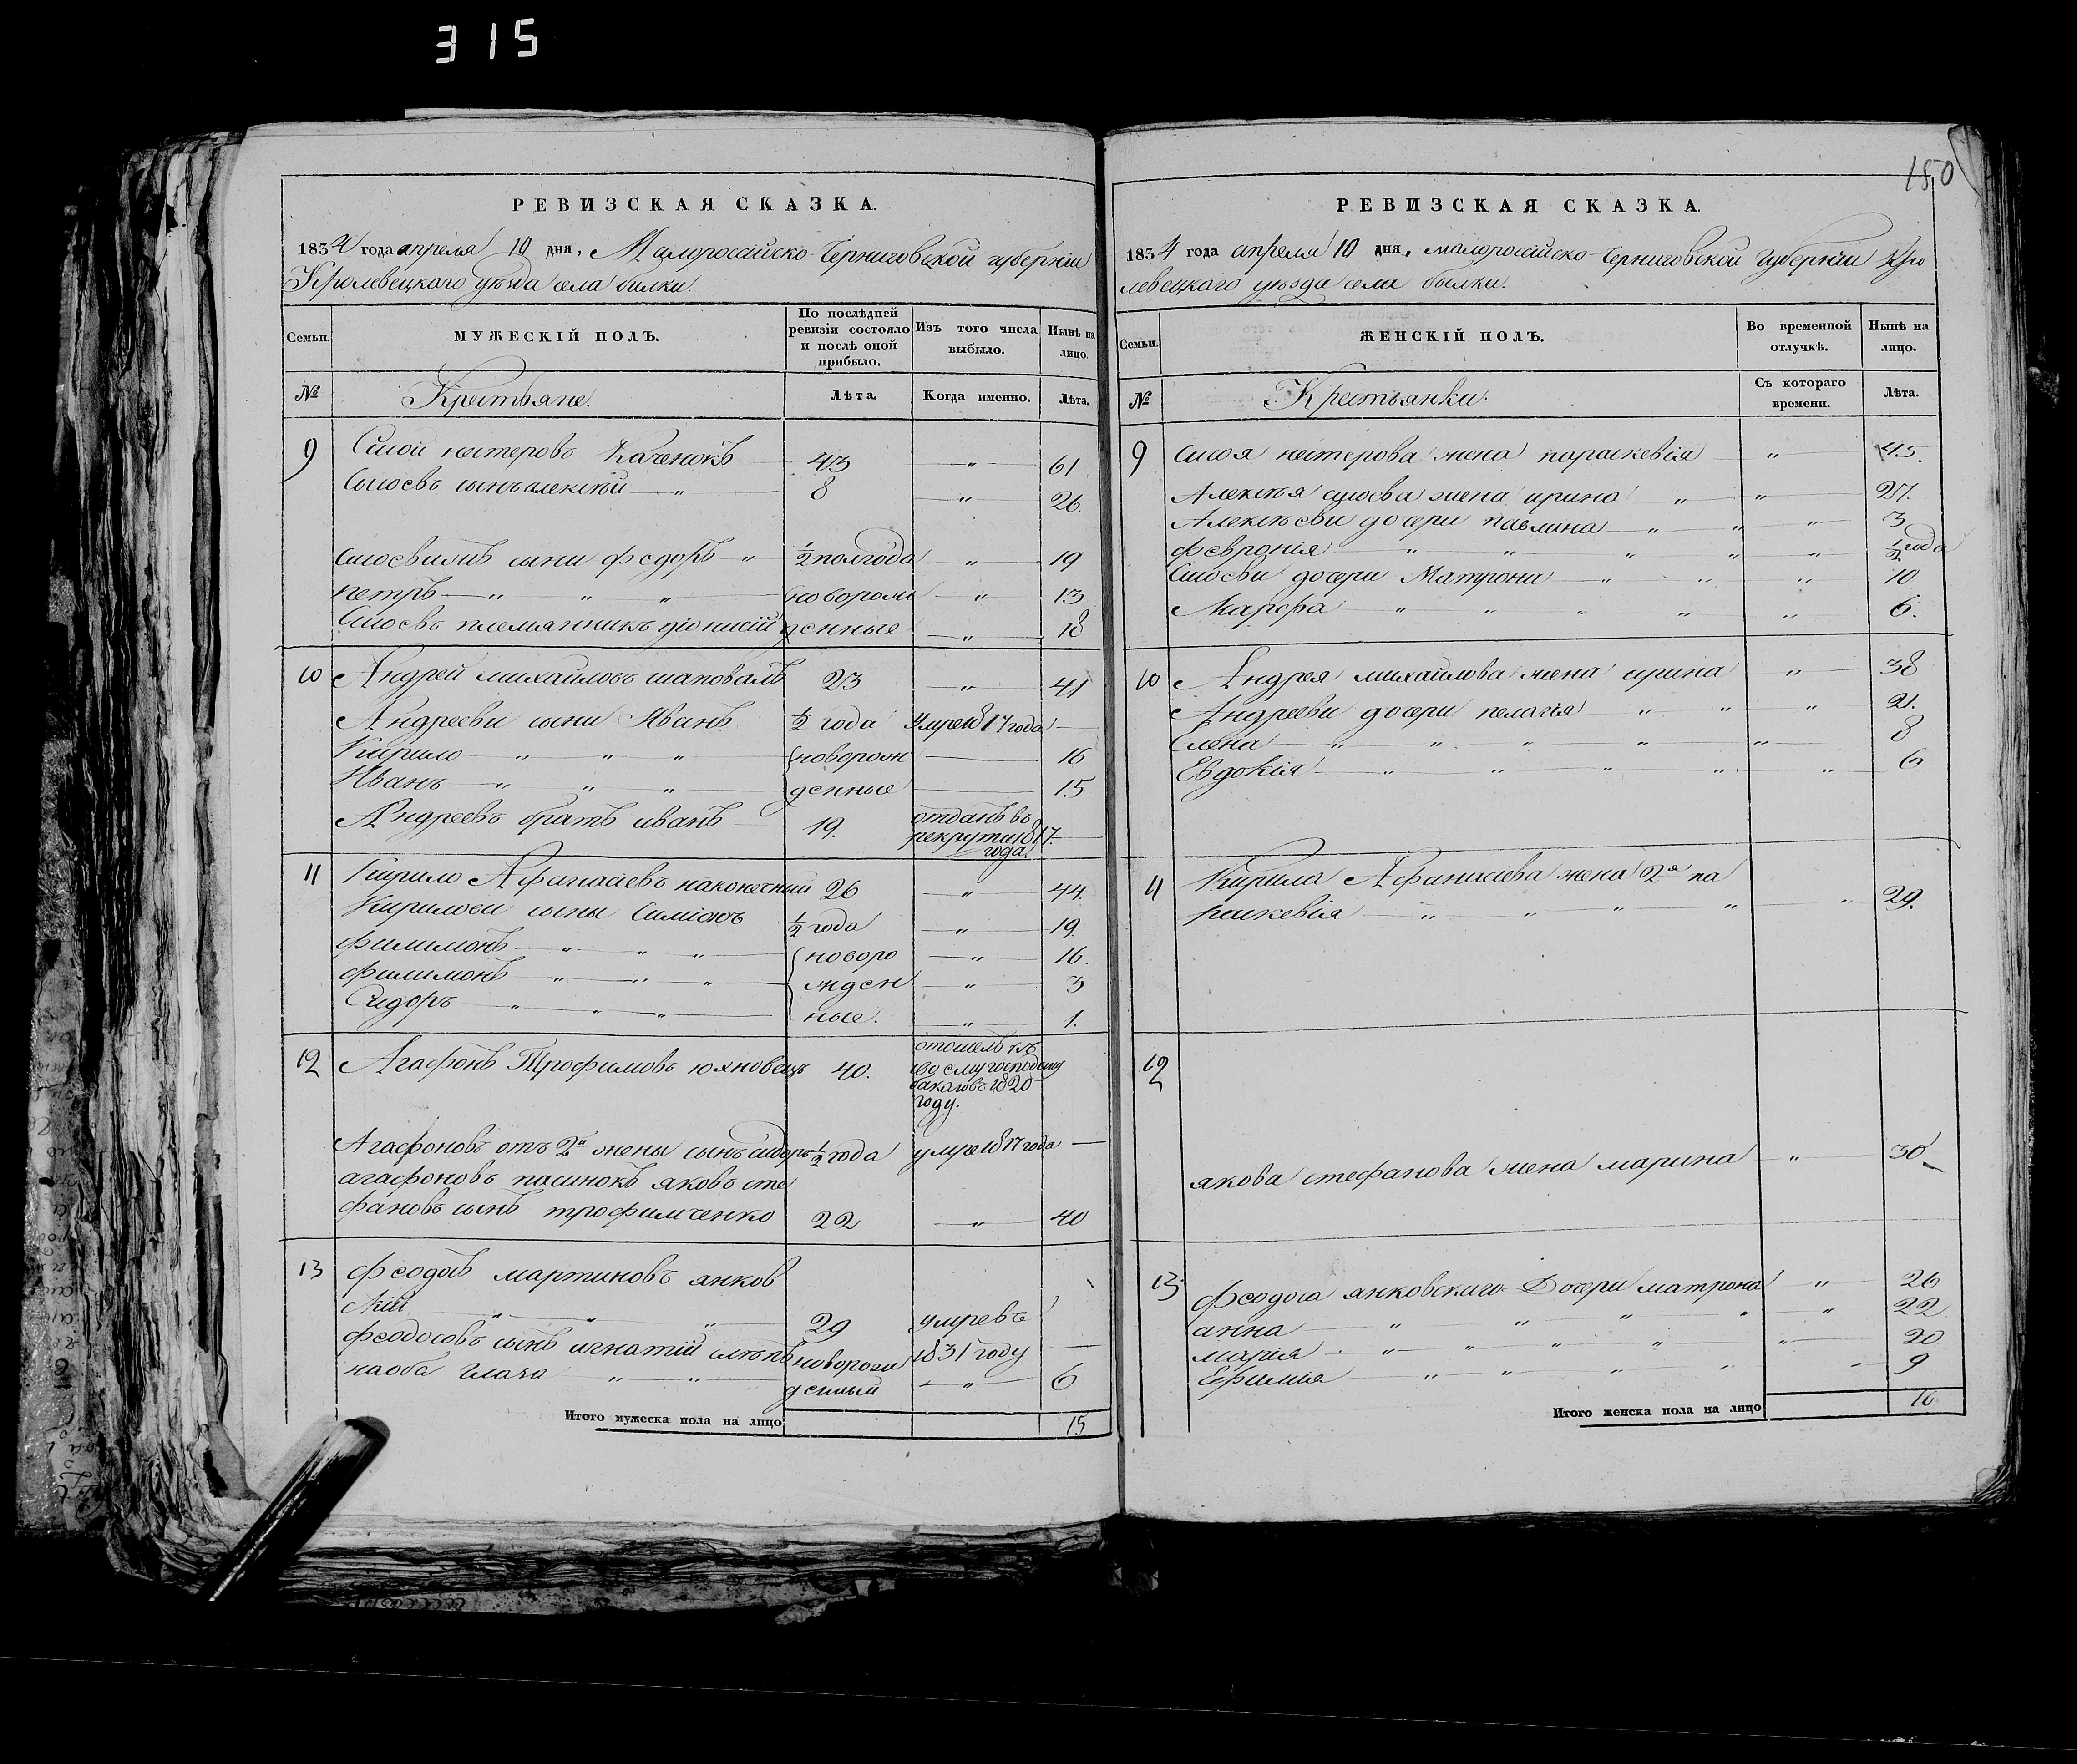 315
150
РЕВИЗСКАЯ СКАЗКА.
1834 года апреля 10 дня, Малороссійско-Черниговской губерніи
Кролевецкаго уѣзда села билки.
Семьи. МУЖЕСКІЙ ПОЛЪ. По послѣдней ревизіи состояло и послѣ оной прибыло. Изъ того числа выбыло. Нынѣ на лицо.
№ Крестьяне. Лѣта. Когда именно. Лѣта.
9 нестеровъ Каченокъ 43 — " — 61
сынъ алексѣй — " 8 — " 26.
сыни федоръ — " ½ полгода — " — 19
петръ — " " " новорож — " 13
племянникъ дионисій денные — " — 18
10 Андрей михайловъ шаповалъ 23 — " — 41
Андрееви сыни Иванъ ½ года умре 1817 года —
Кирило — " " " новорож — 16
Иванъ — " " " денные — 15
Андреевъ братъ иванъ 19. отданъ въ
рекрути 1817. —
года.
11 Кирило Афанасіевъ наконечний 26 — " — 44.
Кирилови сыны Симіонъ ½ года — " — 19.
филимонъ — " " " новоро — " 16.
филимонъ — " " " жден — " — 3
Сидоръ — " " " ные. — " — 1.
12 Агафонъ Трофимовъ юхновецъ 40. отошелъ къ
1820
году.
Агафоновъ отъ 2й жены сынъ сидоръ ½ года умре 1817 года —
агафоновъ пасинокъ яковъ сте
фановъ сынъ трофимченко 22 — " — 40
13 феодосъ мартиновъ янков
скій — " " " 29 умре въ
феодосовъ сынъ игнатій слѣпъ новорож 1831 году —
на оба глаза — " " денный — " — 6
Итого мужеска пола на лицо 15
РЕВИЗСКАЯ СКАЗКА.
1834 года апреля 10 дня, малороссійско-Черниговской губерніи Кро
левецкаго уѣзда села билки.
Семьи. ЖЕНСКІЙ ПОЛЪ. Во временной отлучкѣ. Нынѣ на лицо.
№ Крестьянки. Съ котораго времени. Лѣта.
9 нестерова жена параскевія " — 45.
Алексѣя жена ирина " " — 27.
Алексѣеви дочери павлина — " " " 3
февронія " " " " " ½ года
дочери Матрона — " " " 10
Марфа — " " " " " 6.
10 Андрея михайлова жена ирина " — 38
Андрееви дочери пелагія " " " 21.
Елена — " " " " " 8
Евдокія — " " " " " 6
11 Кирила Афанасіева жена 2я па
раскевія — " " " " " 29.
12
якова стефанова жена марина — " — 30
13 феодоса янковскаго Дочери матрона " — 26
анна — " " " " " 22
марія — " " " " " 20
Ефимия " " " " " 9
Итого женска пола на лицо 16